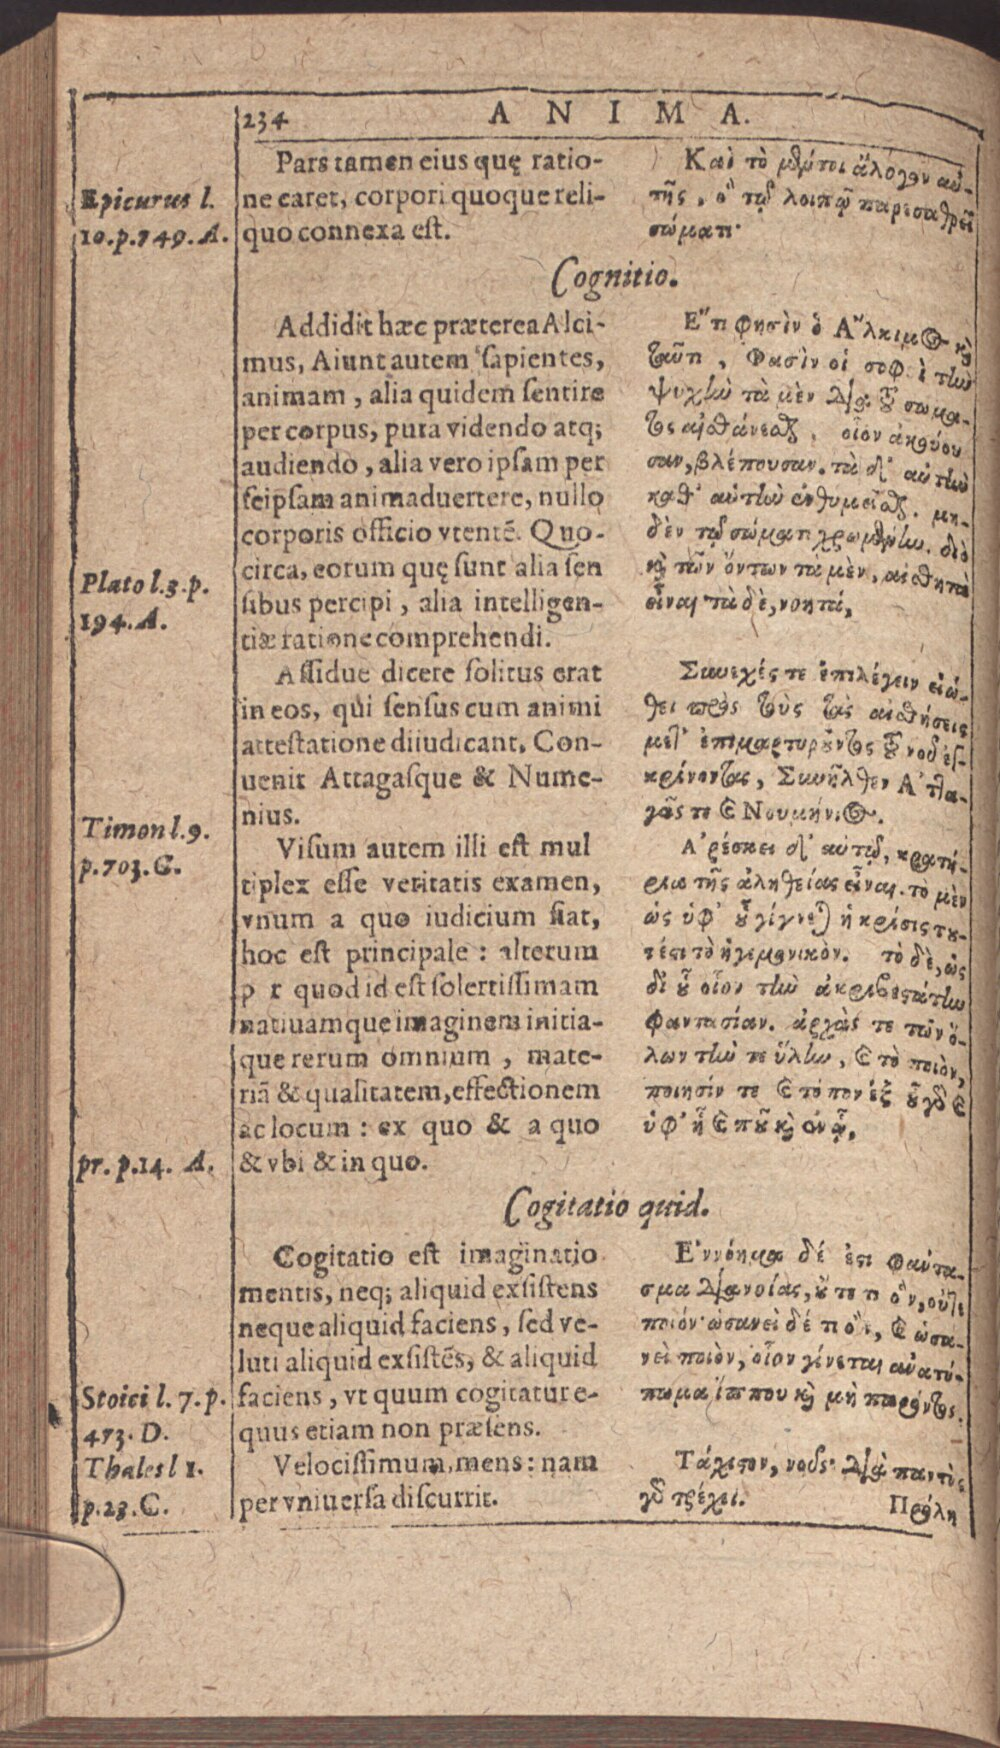 234
ANIMA.
Pars tamen eius quę ratio-
ne caret, corpori quoque reli-
quo connexa est.
Epicurus l.
10.p.749.A.
Καὶ τὸ μέντοι ἄλογον αὐ-
τῆς, ὃ τῷ λοιπῷ παρεσπάρθαι
σώματι·
Cognitio.
Addidit hæc præterea Alci-
mus, Aiunt autem sapientes,
animam, alia quidem sentire
per corpus, puta videndo atq;
audiendo, alia vero ipsam per
seipsam animaduertere, nullo
corporis officio vtentē. Quo-
circa, eorum quę sunt alia sen
sibus percipi, alia intelligen-
tiæ ratione comprehendi.
Plato l.3.p.
194.A.
Ἔτι φησὶν ὁ Ἄλκιμος καὶ
ταῦτα, Φασὶν οἱ σοφοὶ τὴν
ψυχὴν τὰ μὲν διὰ τοῦ σώμα-
τος αἰσθάνεσθαι, οἷον ἀκούου
σαν, βλέπουσαν. τὰ δ' αὐτὴν
καθ' αὑτὴν ἐνθυμεῖσθαι. μη-
δὲν τῷ σώματι χρωμένην. διὸ
καὶ τῶν ὄντων τὰ μὲν, αἰσθητὰ
εἶναι· τὰ δὲ, νοητά,
Assidue dicere solitus erat
in eos, qui sensus cum animi
attestatione diiudicant, Con-
uenit Attagasque & Nume-
nius.
Timon l.9.
p.703.G.
Συνεχές τε ἐπιλέγειν εἰώ-
θει πρὸς τοὺς τὰς αἰσθήσεις
μετ' ἐπιμαρτυροῦντος τοῦ νοῦ ἐγ-
κρίνοντας, Συνῆλθεν Ἀτλα-
γᾶς τε καὶ Νουμήνιος.
Visum autem illi est mul
tiplex esse veritatis examen,
vnum a quo iudicium fiat,
hoc est principale: alterum
p r quod id est solertissimam
natiuamque imaginem initia-
que rerum omnium, mate-
riā & qualitatem, effectionem
ac locum: ex quo & a quo
& vbi & in quo.
pr. p.14. A.
Ἀρέσκει δ' αὐτῷ, κρατή-
ριον τῆς ἀληθείας εἶναι· τὸ μὲν
ὡς ὑφ' οὗ γίγνεται ἡ κρίσις του-
τέστι τὸ ἡγεμονικὸν. τὸ δὲ, ὡς
δι' οὗ οἷον τὴν ἀκριβεστάτην
φαντασίαν. ἀρχάς τε τῶν ὅ-
λων τήν τε ὕλην, καὶ τὸ ποιὸν,
ποίησίν τε καὶ τόπον ἐξ οὗ γὰρ καὶ
ὑφ' ἧ καὶ ποῦ καὶ ἐν ᾧ.
Cogitatio quid.
Cogitatio est imaginatio
mentis, neq; aliquid exsistens
neque aliquid faciens, sed ve-
luti aliquid exsistēs, & aliquid
faciens, vt quum cogitatur e-
quus etiam non præsens.
Stoici l. 7.p.
473. D.
Ἐννόημα δέ ἐστι φάντα-
σμα διανοίας, οὔτε τι ὂν, οὔτε
ποιόν· ὡσανεὶ δέ τι ὂν, καὶ ὡσα-
νεὶ ποιὸν, οἷον γίνεται ἀνατύ-
πωμα ἵππου καὶ μὴ παρόντος.
Velocissimum, mens: nam
per vniuersa discurrit.
Thales l 1.
p.23.C.
Τάχιστον, νοῦς· διὰ παντὸς
γὰρ τρέχει.
Πρόλη